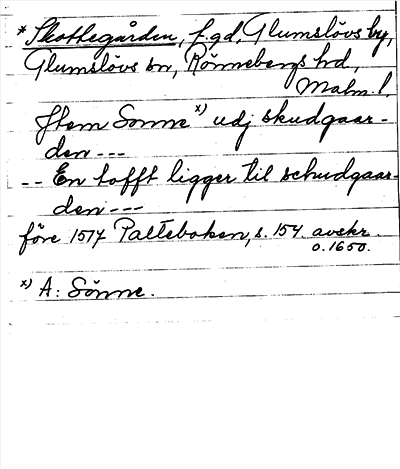 *Skottegården, f.gd, Glumslövs by,
Glumslövs sn, Rönnebergs hd,
Malm. l.
Jtem Sonne x) udj skudgaar-
den ---
-- En tofft ligger til schudgaar-
den ---
före 1517 Palteboken, s. 154 avskr.
o. 1650.
x) A: Sönne.